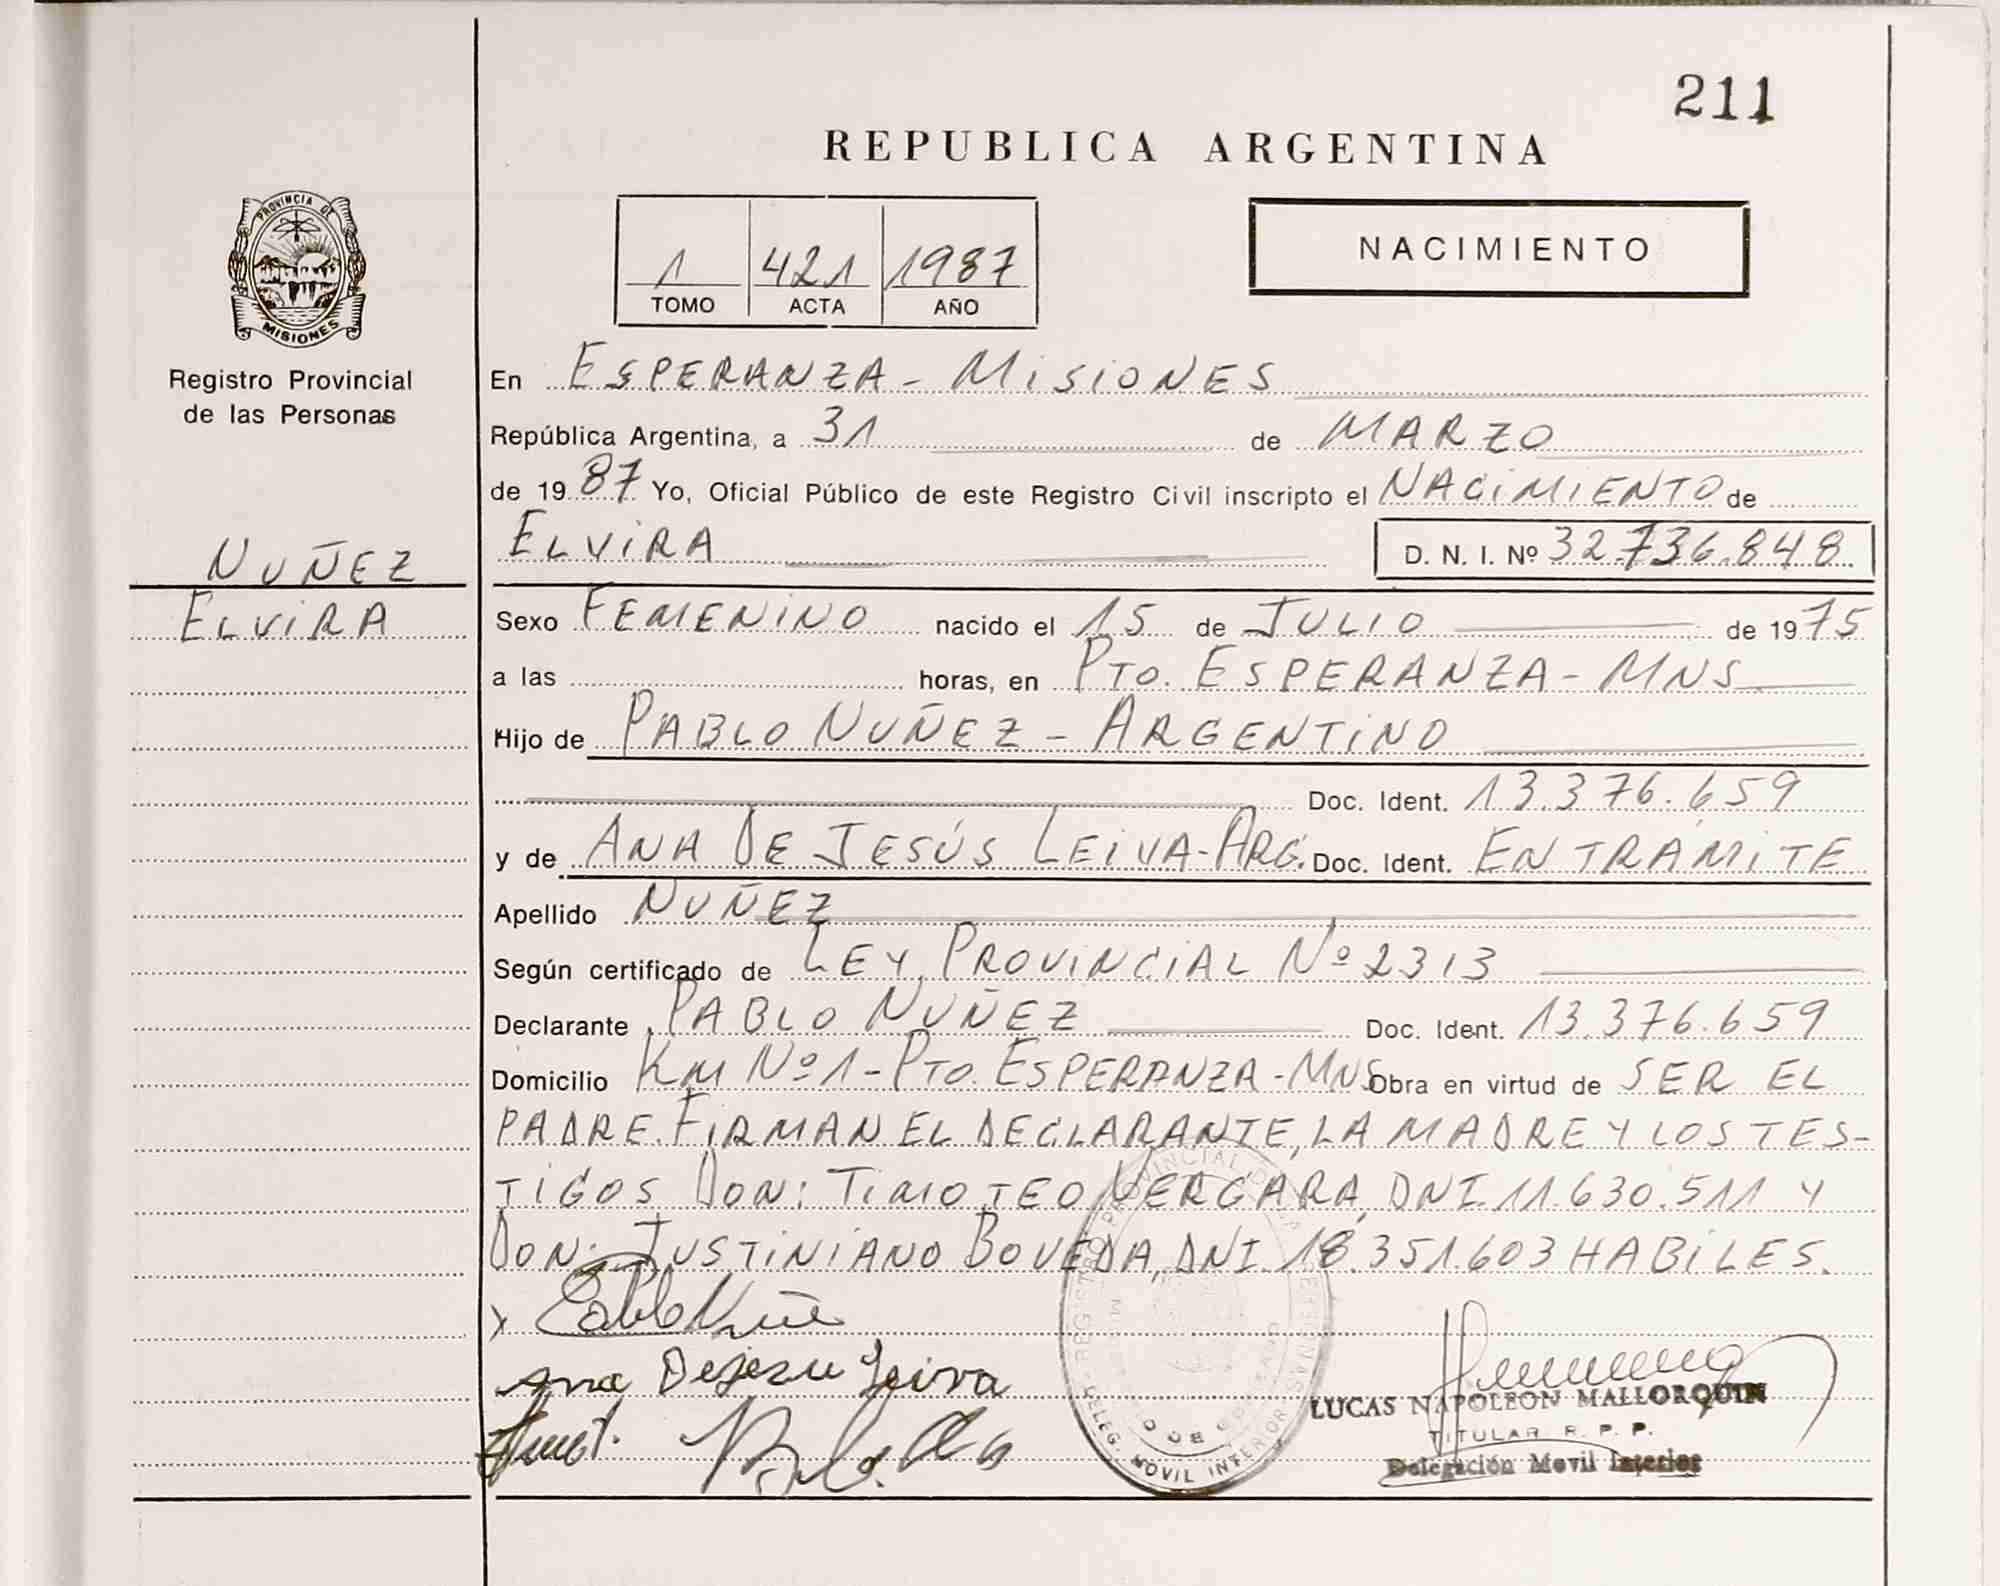 211
REPUBLICA ARGENTINA
1 421 1987
TOMO ACTA AÑO
NACIMIENTO
PROVINCIA DE
MISIONES
Registro Provincial
de las Personas
NUÑEZ
ELVIRA
En ESPERANZA - MISIONES
República Argentina, a 31 de MARZO
de 1987 Yo, Oficial Público de este Registro Civil inscripto el NACIMIENTO de
ELVIRA D. N. I. Nº 32.736.848.
Sexo FEMENINO nacido el 15 de JULIO de 1975
a las horas, en PTO. ESPERANZA - MNS
Hijo de PABLO NUÑEZ - ARGENTINO
Doc. Ident. 13.376.659
y de ANA DE JESÚS LEIVA - ARG. Doc. Ident. EN TRAMITE
Apellido NUÑEZ
Según certificado de LEY PROVINCIAL Nº 2313
Declarante PABLO NUÑEZ Doc. Ident. 13.376.659
Domicilio KM Nº 1 - PTO. ESPERANZA - MNS Obra en virtud de SER EL
PADRE. FIRMAN EL DECLARANTE, LA MADRE Y LOS TES-
TIGOS DON: TIMOTEO VERGARA, DNI. 11.630.511 Y
DON: JUSTINIANO BOVEDA, DNI. 18.351.603 HABILES.
x Pablo Nuñe
Ana Dejesu Leiva
LUCAS NAPOLEON MALLORQUIN
TITULAR R. P. P.
Delegación Movil Interior
REGISTRO PROVINCIAL DE LAS PERSONAS
DELEG. MOVIL INTERIOR